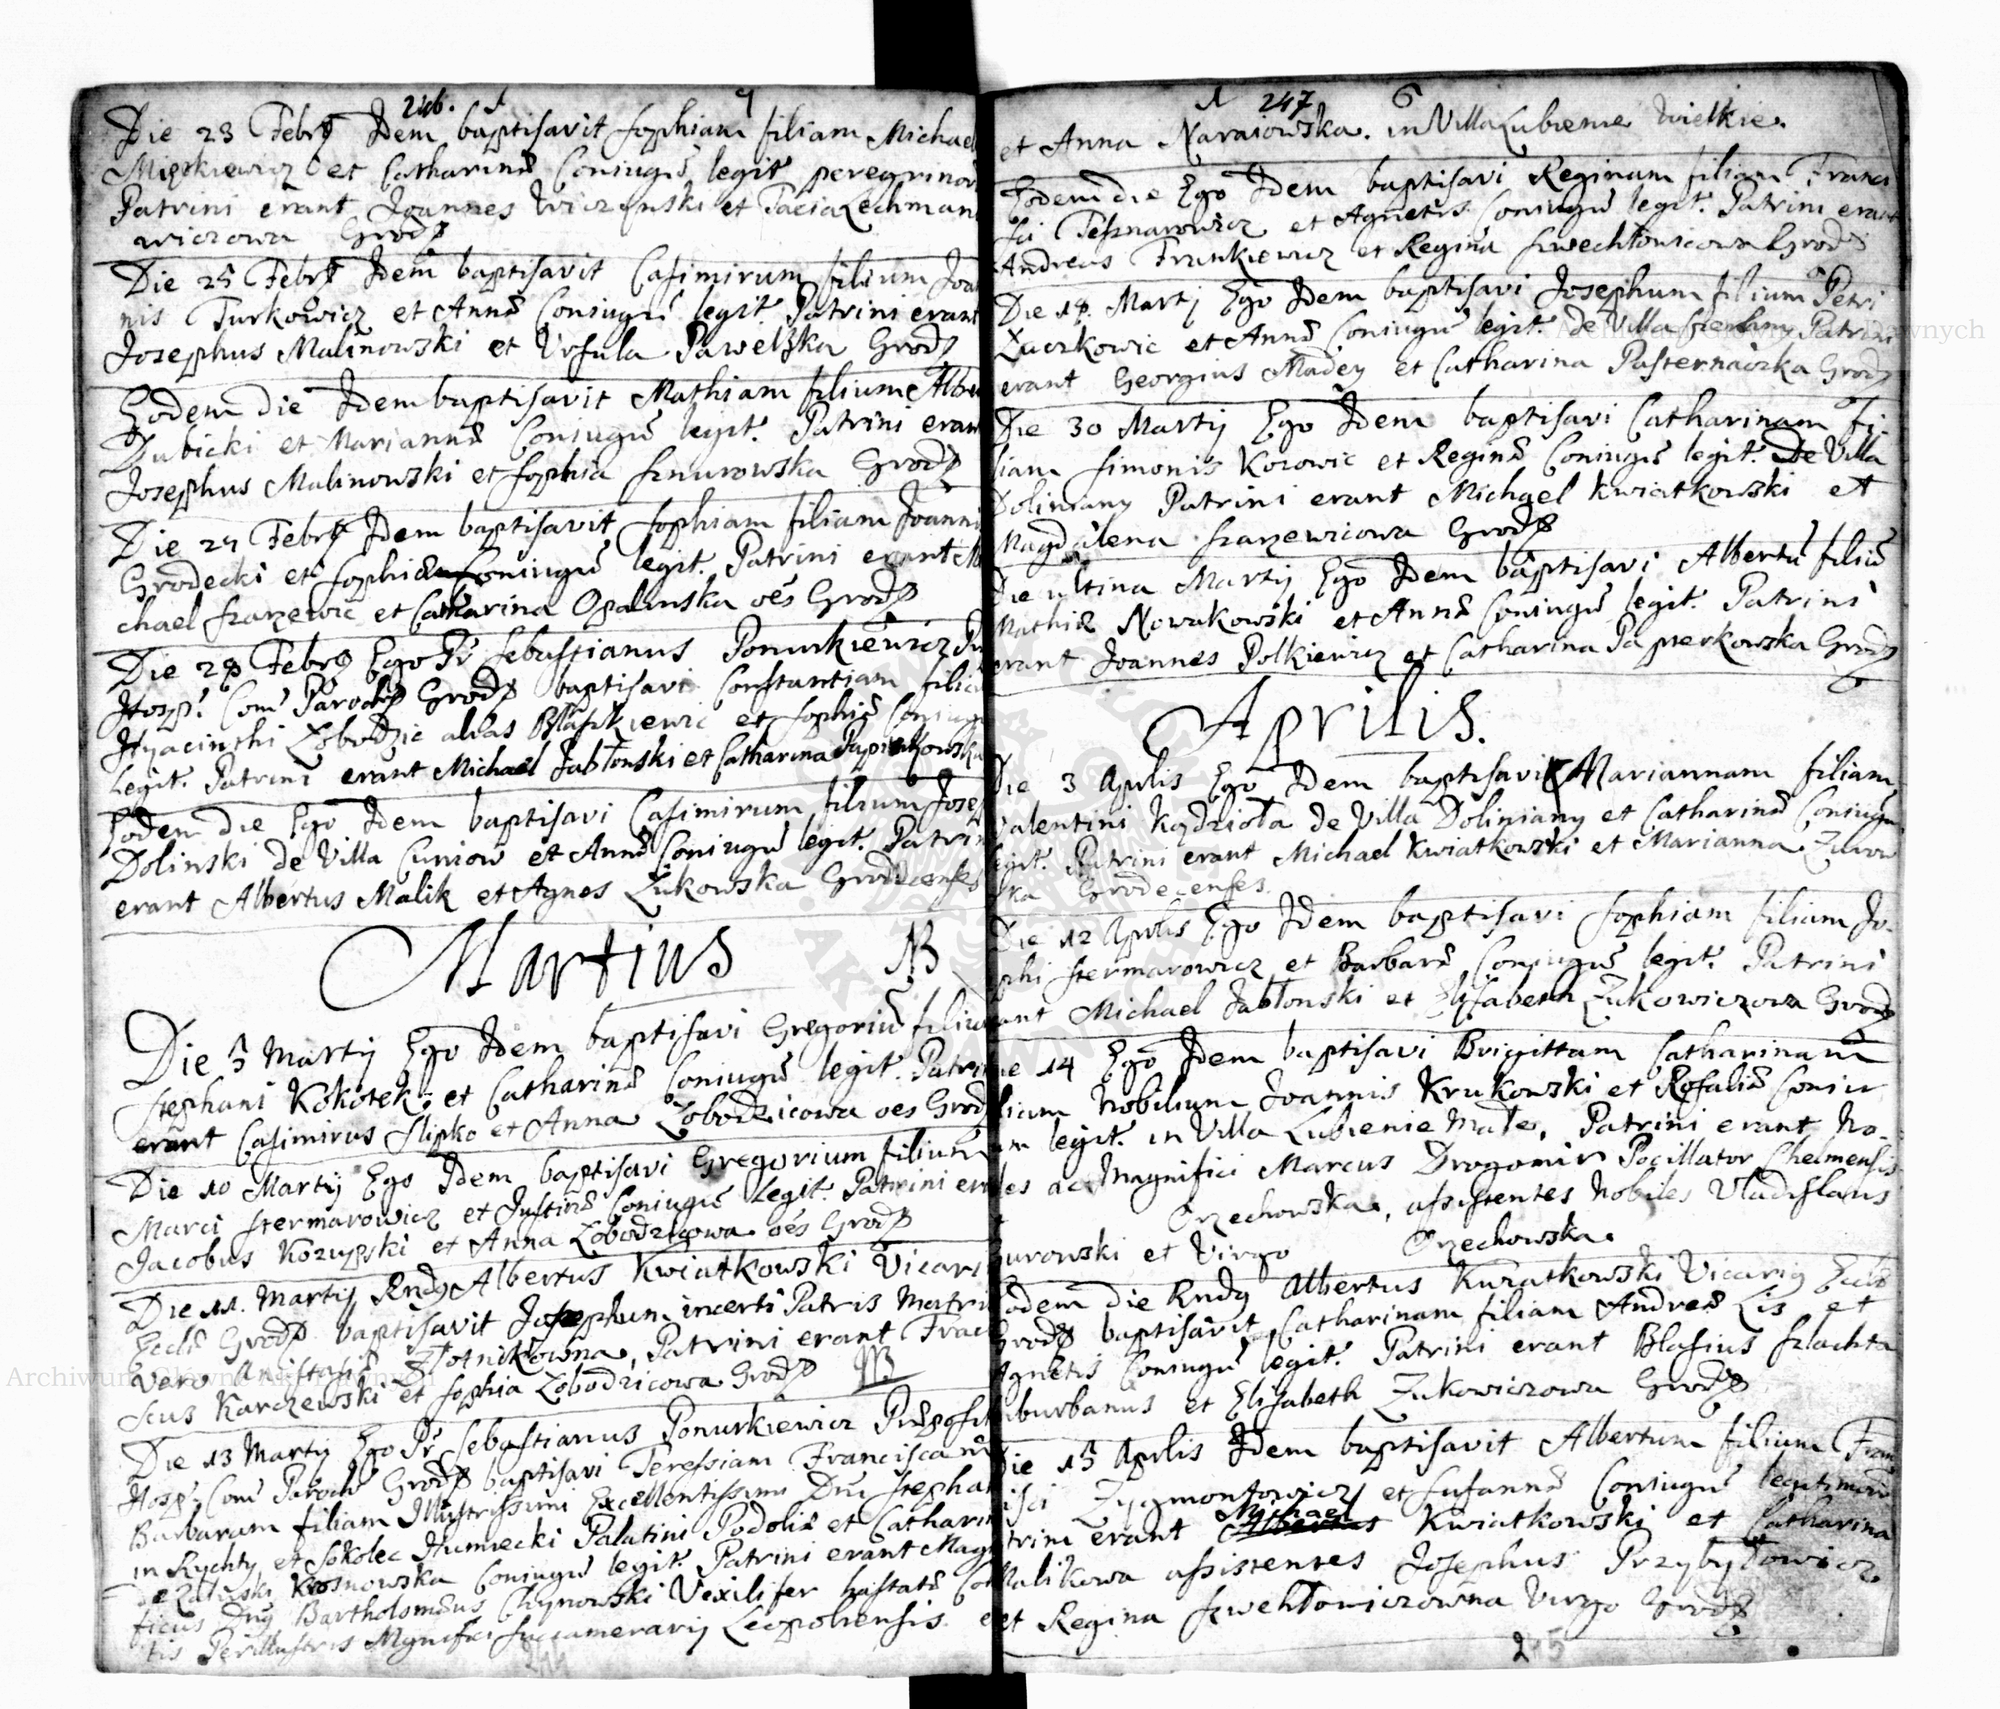 246.
Die 23 Febrş Idem baptisavit Sophiam filiam Michael
Mięskiewicz et Catharinæ Coniugũ legit. peregrinor
Patrini erant Joannes et Pacia Lechman
wiczowa Grodş
Die 25 Febrş Idem baptisavit Casimirum filium Joan
nis Turkowicz et Annæ Coniugũ legit. Patrini erant
Josephus Malinowski et Vrsula Pawelska Grodş
Eodem die Idem baptisavit Mathiam filium Alber
Dubicki et Mariannæ Coniugũ legit. Patrini erant
Josephus Malinowski et Sophia Sznurowska Grodş
Die 27 Febrş Idem baptisavit Sophiam filiam Joanni
Grodecki et Sophiæ Coniugũ legit. Patrini erant Mi
chael Szarzewic et Catharina Opalinska oẽs Grodş
Die 28 Febrş Ego Pr Sebastianus Ponurkiewicz Pr
Hosp. Com Paroch Grodş baptisavi Constantiam filia
Hyacinthi Łobodzic alias Błaszkiewic et Sophiæ Coniug
legit. Patrini erant Michael Jabłonski et Catharina Papierkowska
Eodem die Ego Idem baptisavi Casimirum filium Josep
Dolinski de Villa Cuniow et Annæ Coniugũ legit. Patrin
erant Albertus Malik et Agnes Zukowska Grodecenses
Martius NB
Die 5 Martij Ego Idem baptisavi Gregoriũ filium
Stephani Kokotek et Catharinæ Coniugũ legit. Patrini
erant Casimirus Slipko et Anna Łobodzicowa oes Grodş
Die 10 Martij Ego Idem baptisavi Gregorium filium
Marci Stermarowicz et Justinæ Coniugũ legit. Patrini era
Jacobus Kozupski et Anna Łobodzicowa oẽs Grodş
Die 11. Martij Rndş Albertus Kwiatkowski Vicari
Eccliæ Grodş baptisavit Josephum incerti Patris Matri
vero Anastasiæ Złotnikowna, Patrini erant Franci
scus Karczewski et Sophia Łobodzicowa Grodş NB
Die 13 Martij Ego Pr Sebastianus Ponurkiewicz Præposit
Hosp. Com Paroch Grodş baptisavi Teressiam Franciscam
Barbaram filiam Illustrissimi Excellentissimi Dni Stephan
in Rychty et Sokolec Humiecki Palatini Podoliæ et Catharin
de Załuski Krosnowska Coniugũ legit. Patrini erant Magni
ficus Dnş Bartholomæus Chynowski Vexilifer hastatæ Co
tis Perillustris Magnifici Succamerarij Leopoliensis et
247
et Anna Naraiowska. in Villa Lubienie Wielkie.
Eodem die Ego Idem baptisavi Reginam filiam Franci
sci Pesznarowicz et Agnetis Coniugũ legit. Patrini erant
Andreas Frankiewicz et Regina Szwechłowicowa Grodş
Die 18. Martij Ego Idem baptisavi Josephum filium Petri
Zuczkowic et Annæ Coniugũ legit. de Villa Patrini
erant Georgius Madey et Catharina Pasternaczka Grodş
Die 30 Martij Ego Idem baptisavi Catharinam fi-
liam Simonis Kozowic et Reginæ Coniugũ legit. De Villa
Doliniany Patrini erant Michael Kwiatkowski et
Magdalena Szarzewicowa Grodş
Die ultima Martij Ego Idem baptisavi Albertũ filiũ
Mathiæ Nowakowski et Annæ Coniugũ legit. Patrini
erant Joannes Polkiewicz et Catharina Papierkowska Grodş
Aprilis.
Die 3 Aprilis Ego Idem baptisavi Mariannam filiam
Valentini Kędzioła de Villa Doliniany et Catharinæ Coniugũ
legit. Patrini erant Michael Kwiatkowski et Marianna Zurow
ska Grodecenses.
Die 12 Aprilis Ego Idem baptisavi Sophiam filiam Jo-
sephi Stermarowicz et Barbaræ Coniugũ legit. Patrini
erant Michael Jabłonski et Elisabeth Zukowiczowa Grodş
Die 14 Ego Idem baptisavi Brigittam Catharinam
filiam Nobilium Joannis Krukowski et Rosaliæ Coniu
um legit. in Villa Lubienie Małe, Patrini erant No-
biles ac Magnifici Marcus Drogomir Pocillator Chelmensis
et Orzechowska, assistentes Nobiles Vladislaus
Zurowski et Virgo Orzechowska.
Eodem die Rndş Albertus Kwiatkowski Vicariş Eccliæ
Grodş baptisavit Catharinam filiam Andreæ Lis et
Agnetis Coniugũ legit. Patrini erant Blasius Szlachta
Suburbanus et Elisabeth Zukowiczowa Grodş
Die 15 Aprilis Idem baptisavit Albertum filium Fran
cisci Zygmontowicz et Susannæ Coniugũ legitimorũ
Patrini erant Albertus Michael Kwiatkowski et Catharina
Malikowa assistentes Josephus Przybyłowicz
et Regina Szwehłowiczowna Virgo Grodş
245
Archiwum Główne Akt Dawnych